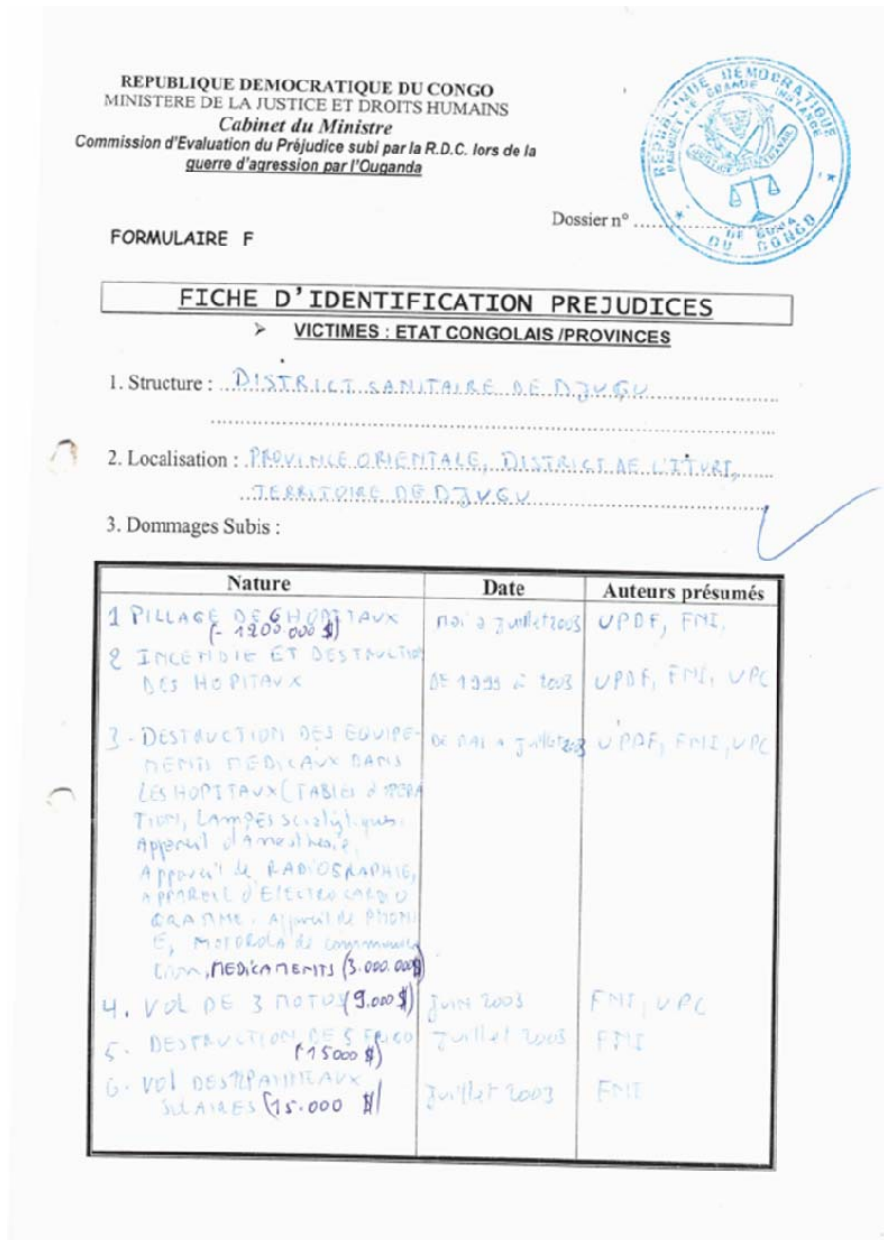 REPUBLIQUE DEMOCRATIQUE DU CONGO
MINISTERE DE LA JUSTICE ET DROITS HUMAINS
Cabinet du Ministre
Commission d'Evaluation du Préjudice subi par la R.D.C. lors de la
guerre d'agression par l'Ouganda
REPUBLIQUE DEMOCRATIQUE
PARQUET DE GRANDE INSTANCE
JUSTICE PAIX TRAVAIL
DE BUNIA
DU CONGO
Dossier n° ....................
FORMULAIRE F
FICHE D'IDENTIFICATION PREJUDICES
➢ VICTIMES : ETAT CONGOLAIS /PROVINCES
1. Structure : DISTRICT SANITAIRE DE DJUGU
2. Localisation : PROVINCE ORIENTALE, DISTRICT DE L'ITURI,
TERRITOIRE DE DJUGU
3. Dommages Subis :
Nature Date Auteurs présumés
1 PILLAGE DE 6 HOPITAUX mai à Juillet 2003 UPDF, FNI,
(- 1200.000 $)
2 INCENDIE ET DESTRUCTION
DES HOPITAUX DE 1999 à 2003 UPDF, FNI, UPC
3 - DESTRUCTION DES EQUIPE- DE MAI à Juillet 2003 UPDF, FNI, UPC
MENTS MEDICAUX DANS
LES HOPITAUX (TABLES d'OPERA
TION, LAMPES scialytiques.
Appareil d'Anesthesie,
Appareil de RADIOGRAPHIE,
APPAREIL d'ELECTROCARDIO
GRAMME. Appareil de PHONI
E, MOTOROLA de communica
tion, MEDICAMENTS (3.000.000$)
4. VOL DE 3 MOTOS (9.000 $) JUIN 2003 FNI, UPC
5. DESTRUCTION DE 5 FRIGO Juillet 2003 FNI
(15000 $)
6. VOL DES PANNEAUX
SOLAIRES (15.000 $) Juillet 2003 FNI